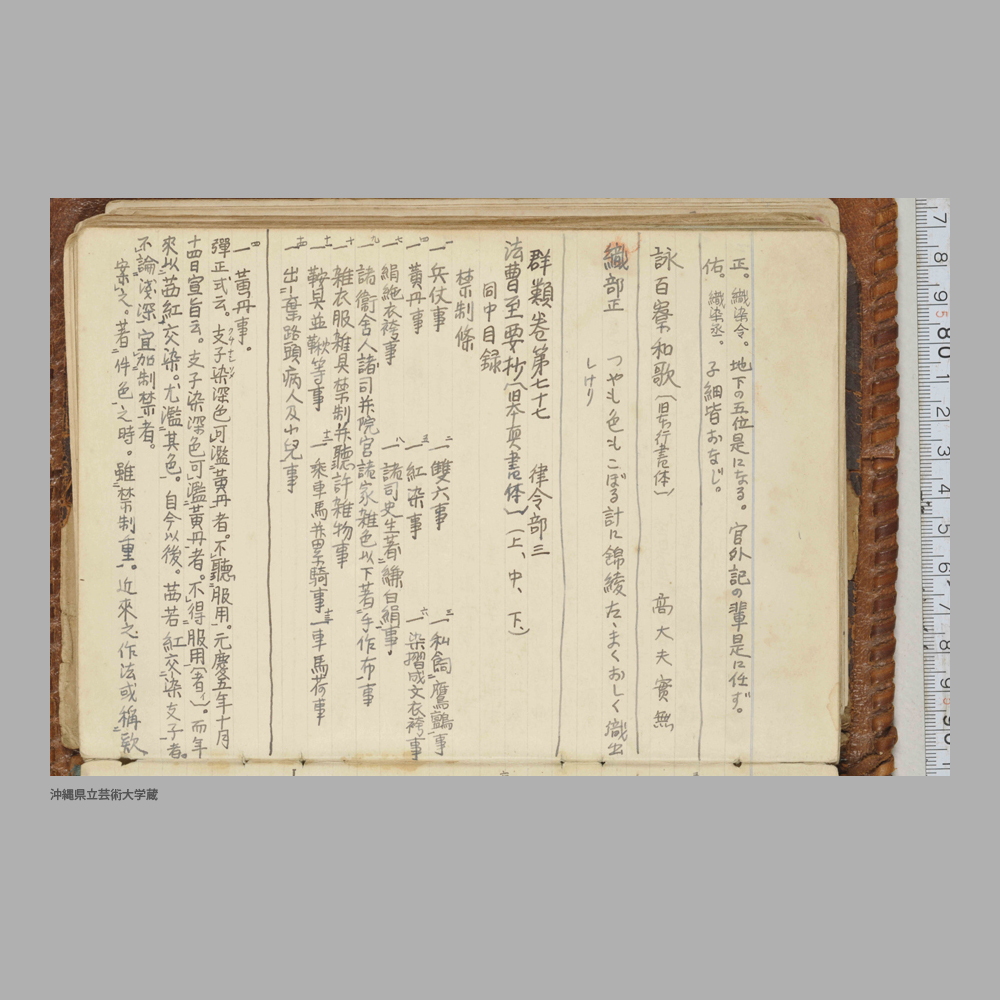 正。織染令。地下の五位是になる。官外記の輩是に任ず。
佑。織染丞。子細皆おなじ。
詠百寮和歌 高大夫實無
織部正 つやも色もこぼる計に錦綾たゝまくおしく織出
しけり
群類卷第七十七 律令部三
法曹至要抄 (上、中、下、)
同中目録
禁制條
一 兵仗事 二 一 雙六事 三 一 私飼鷹鸇事
四 一 黄丹事 五 一 紅染事 六 一 染摺成文衣袴事
七 一 絹絁衣袴事 八 一 諸司史生著縑白絹事。
九 一 諸衞舍人諸司并院宮諸家雜色以下著手作布事
十 一 雜衣服雜具禁制并聽許雑物事
十一 一 鞍具並鞦等事 十二 一 乘車馬并累騎事 十三 一 車馬荷事
十四 一 出棄路頭病人及小兒事
四 一 黄丹事。
彈正式云。支子染深色可濫黄丹者。不聽服用。元慶五年十月
十四日宣旨云。支子染深色可濫黄丹者。不得服用(者イ)。而年
來以茜紅交染。尤濫其色。自今以後。茜若紅交染支子者。
不論淺深宜加制禁者。
案之。著件色之時。雖禁制重。近來之作法或稱欵
沖縄県立芸術大学蔵